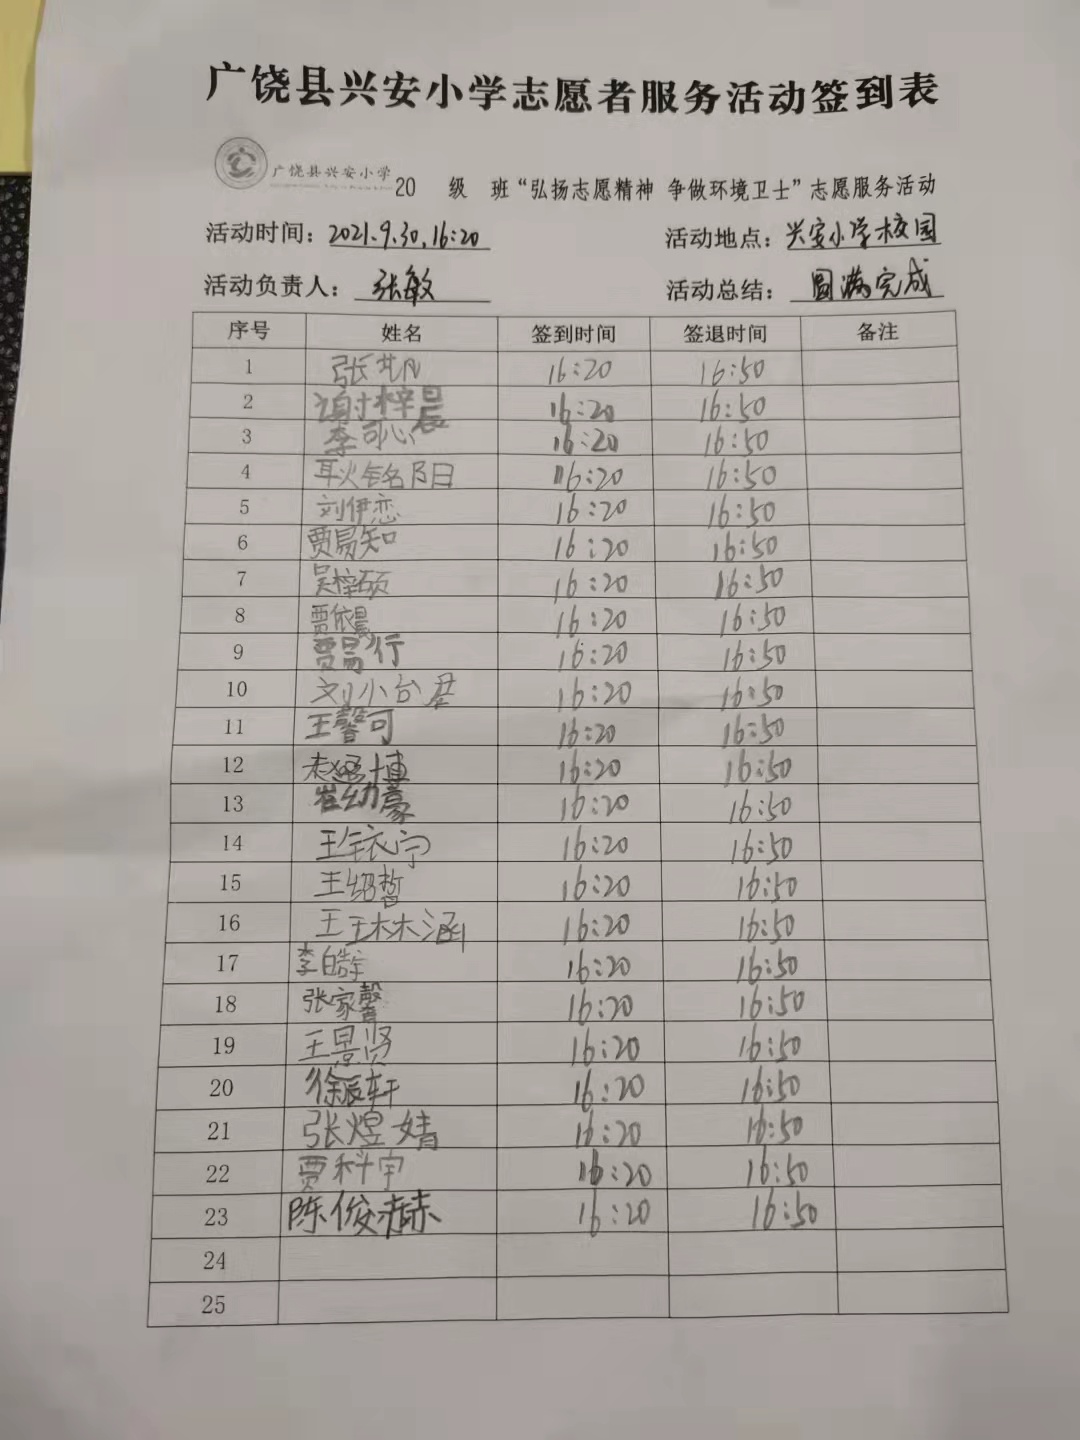 广饶县兴安小学志愿者服务活动签到表
广饶县兴安小学 20 级 班“弘扬志愿精神 争做环境卫士”志愿服务活动
活动时间：2021.9.30.16:20 活动地点：兴安小学校园
活动负责人：张敏 活动总结：圆满完成
序号 姓名 签到时间 签退时间 备注
1 张艺凡 16:20 16:50
2 谢梓晨 16:20 16:50
3 李可心 16:20 16:50
4 耿铭阳 16:20 16:50
5 刘伊恋 16:20 16:50
6 贾易知 16:20 16:50
7 吴梓硕 16:20 16:50
8 贾依晨 16:20 16:50
9 贾易行 16:20 16:50
10 刘小台 16:20 16:50
11 王馨可 16:20 16:50
12 赵博 16:20 16:50
13 崔幼豪 16:20 16:50
14 王铱宁 16:20 16:50
15 王绍哲 16:20 16:50
16 王琳涵 16:20 16:50
17 李皓宇 16:20 16:50
18 张家馨 16:20 16:50
19 王景贤 16:20 16:50
20 徐宸轩 16:20 16:50
21 张煜婧 16:20 16:50
22 贾科宇 16:20 16:50
23 陈俊赫 16:20 16:50
24
25